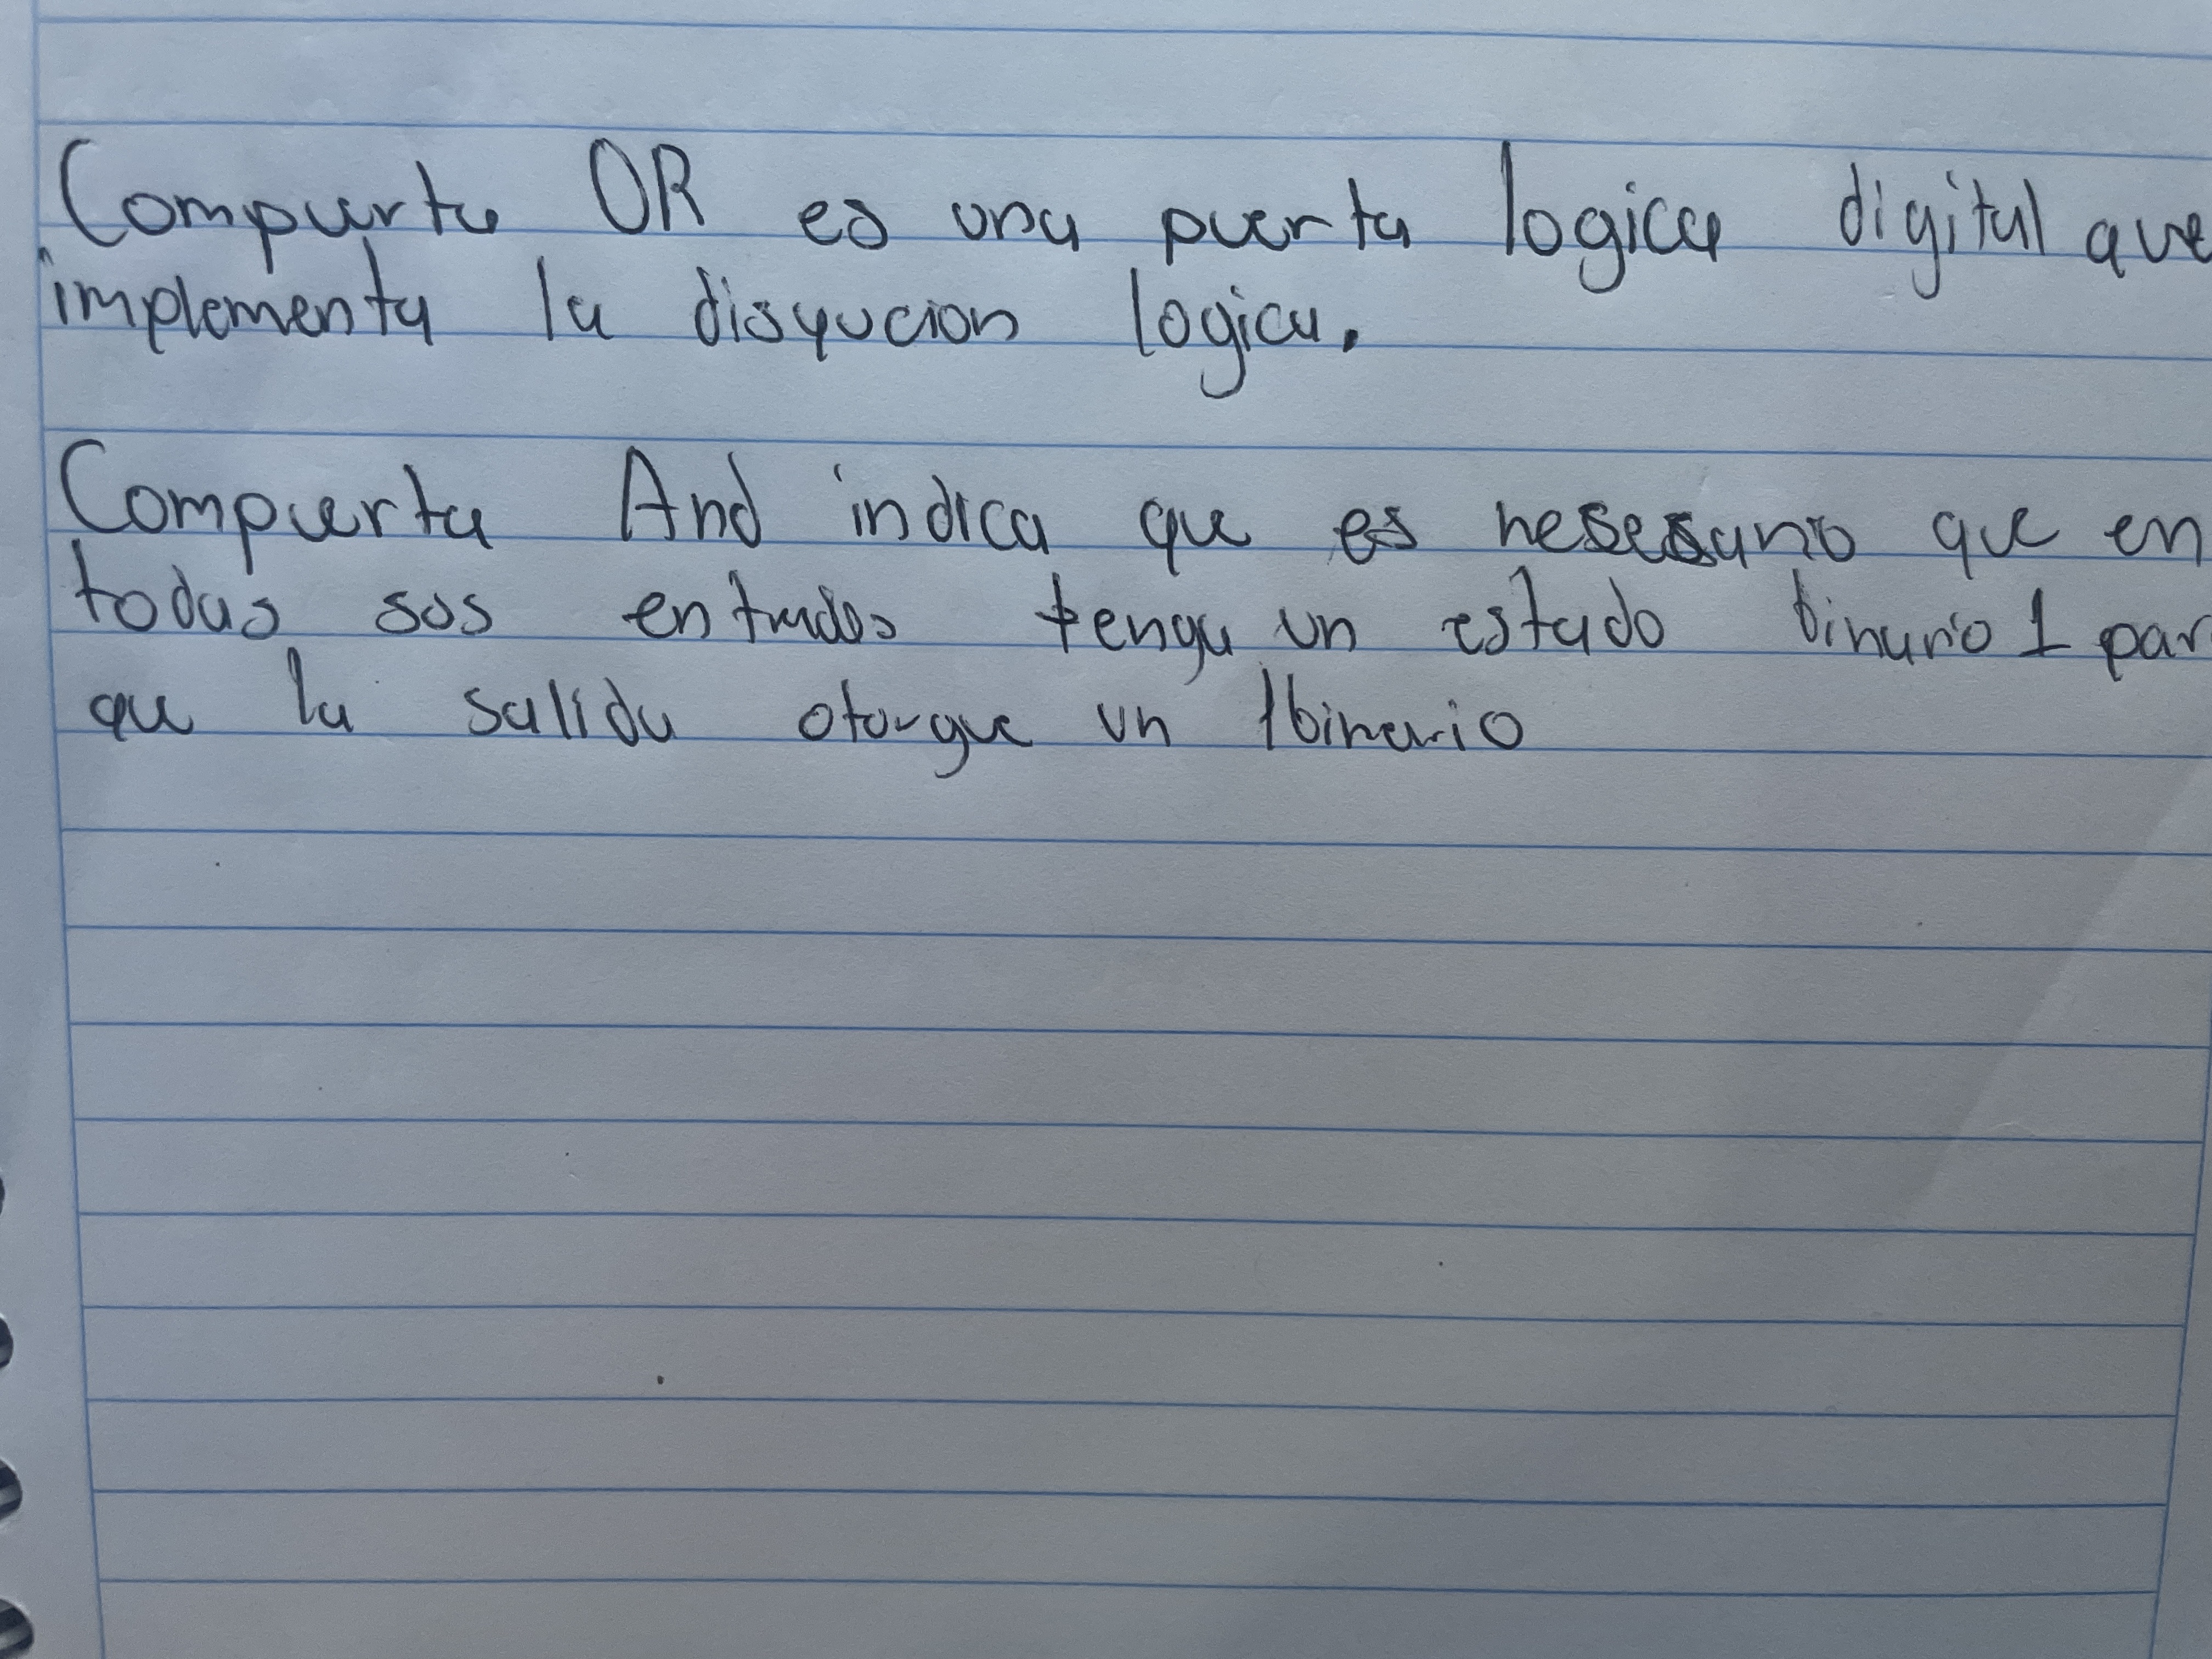 Compuerta OR es una puerta logica digital que
implementa la disyucion logica.
Compuerta And indica que es nesesario que en
todas sus entradas tenga un estado binario 1 par
que la salida otorgue un 1binario